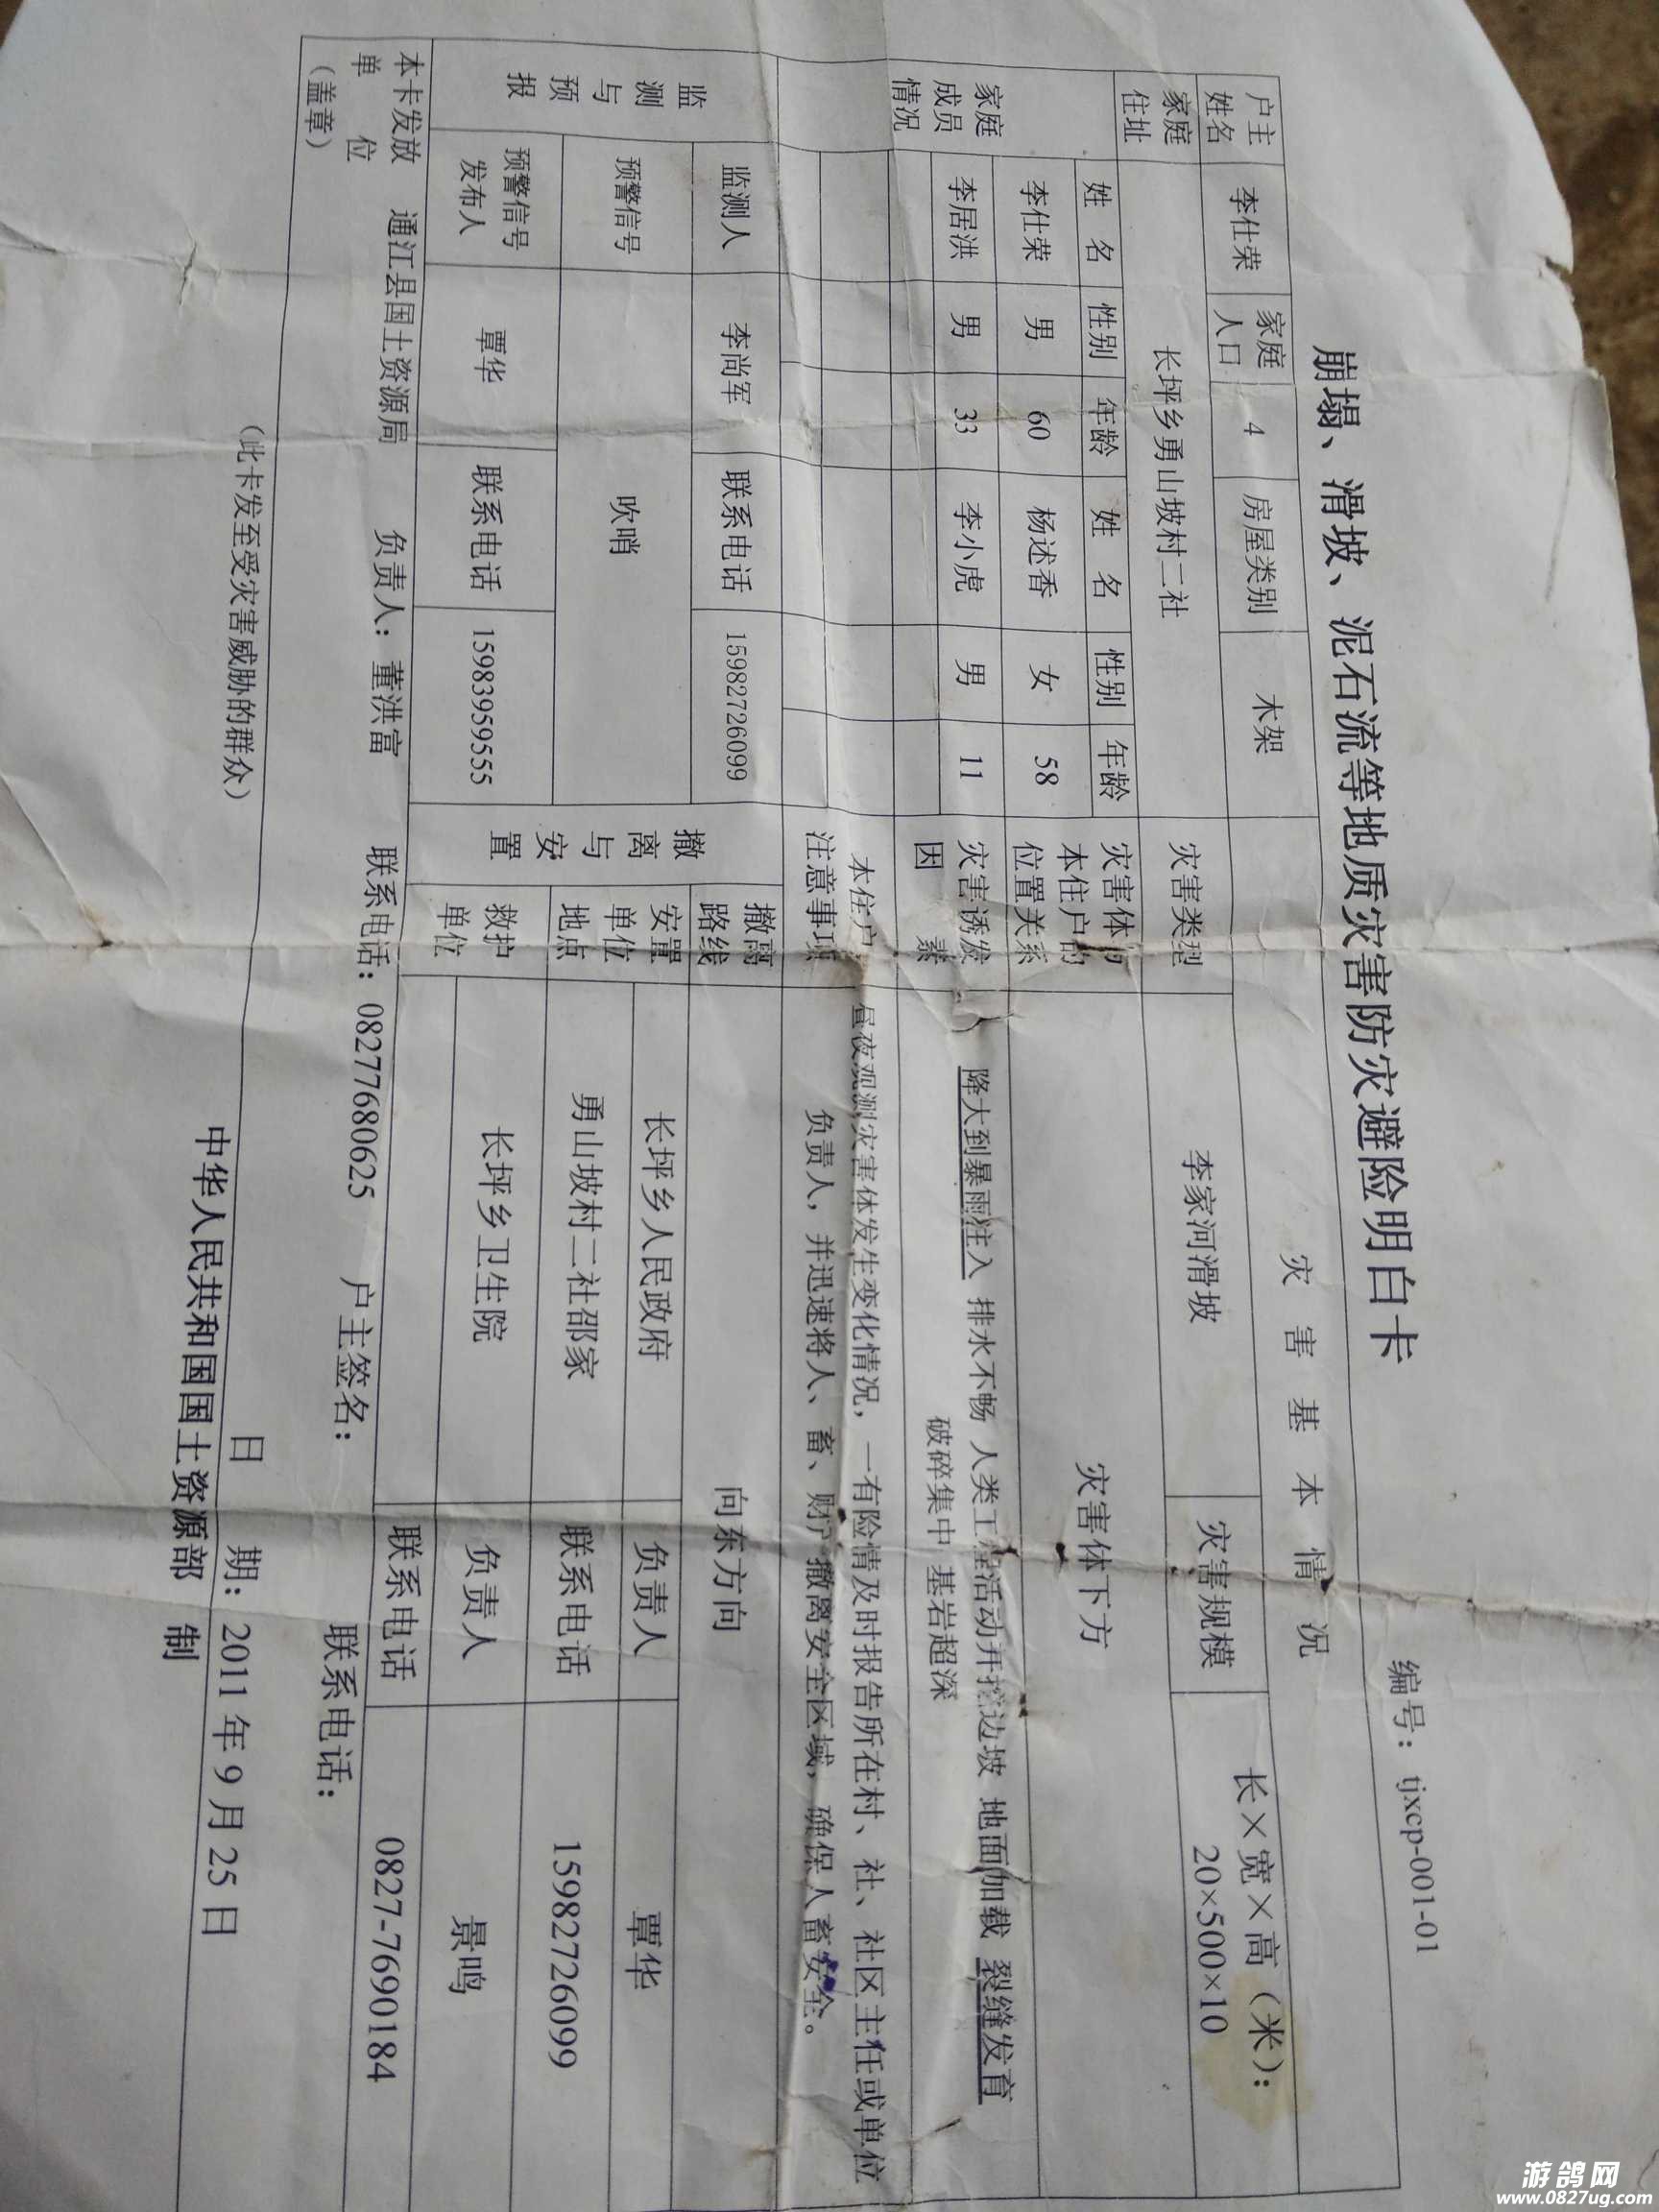 崩塌、滑坡、泥石流等地质灾害防灾避险明白卡
编号：tjxcp-001-01
户主姓名 李仕荣 家庭人口 4 房屋类别 木架
家庭住址 长坪乡勇山坡村二社
家庭成员情况
姓 名 性别 年龄 姓 名 性别 年龄
李仕荣 男 60 杨述香 女 58
李居洪 男 33 李小虎 男 11
灾 害 基 本 情 况
灾害类型 李家河滑坡 灾害规模 长×宽×高（米）：
20×500×10
灾害体与本住户的位置关系 灾害体下方
灾害诱发因素 降大到暴雨注入 排水不畅 人类工程活动开挖边坡 地面加载 裂缝发育
破碎集中 基岩超深
本住户注意事项 昼夜观测灾害体发生变化情况，一有险情及时报告所在村、社、社区主任或单位
负责人，并迅速将人、畜、财产撤离安全区域，确保人畜安全。
监测与预报
监测人 李尚军 联系电话 15982726099
预警信号 吹哨
预警信号发布人 覃华 联系电话 15983959555
撤离与安置
撤离路线 向东方向
安置单位地点 长坪乡人民政府 负责人 覃华
勇山坡村二社邵家 联系电话 15982726099
救护单位 长坪乡卫生院 负责人 景鸣
联系电话 0827-7690184
本卡发放单位（盖章） 通江县国土资源局 负责人：董洪富 联系电话：08277680625 户主签名： 联系电话：
（此卡发至受灾害威胁的群众） 日 期：2011年9月25日
中华人民共和国国土资源部 制
游鸽网
www.0827ug.com